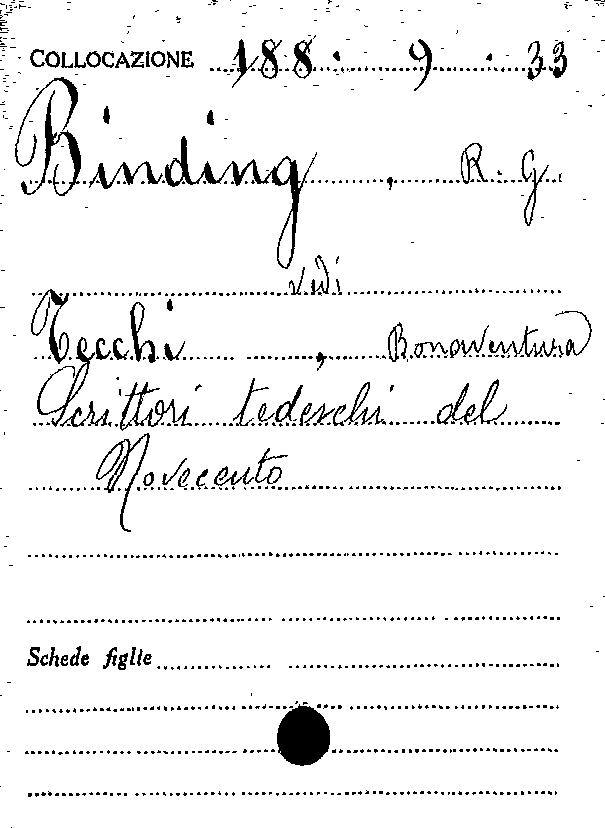 COLLOCAZIONE 188. 9. 33
Binding, R. G.
vedi
Tecchi, Bonaventura
Scrittori tedeschi del
Novecento
Schede figlie